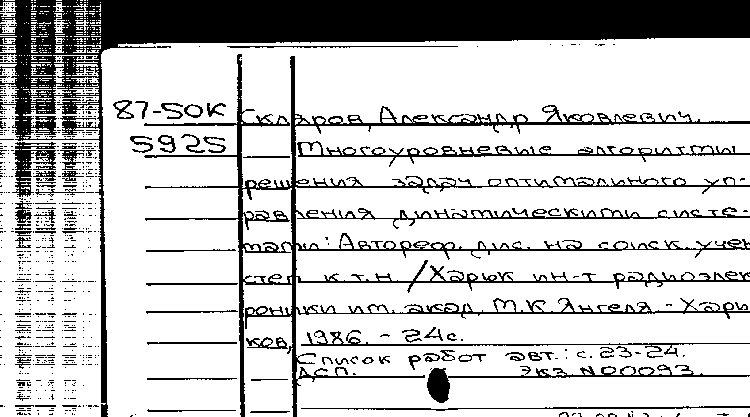 87-50К Скляров, Александр Яковлевич.
5925 Многоуровневые алгоритмы
решения задач оптимального уп-
равления динамическими систе-
мами: Автореф. дис. на соиск. учен
степ к.т.н. /Харьк ин-т радиоэлек
роники им. акад. М.К Янгеля - Харь
ков, 1986. - 24с.
Список работ авт.: с. 23-24.
ДСП. Экз N00093.